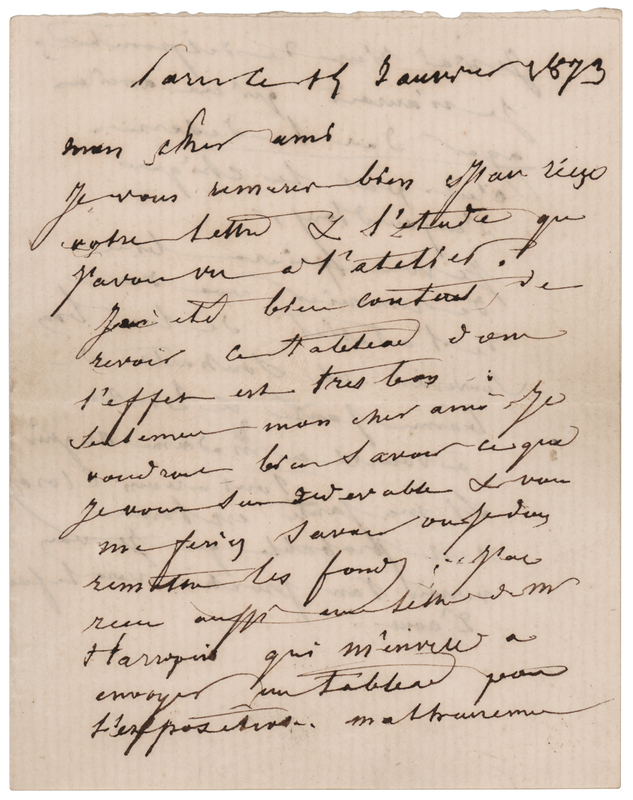 Paris le 15 Janvier 1873
mon cher ami
Je vous remercie bien J'ai reçu
votre lettre & l'étude que
J'avais vu a l'atelier.
J'ai eté bien content de
revoir ce tableau dont
l'effet est tres bon :
seulement mon cher ami Je
voudrais bien savoir ce que
Je vous suis redevable & vous
me feriez savoir ou Je dois
remettre les fonds ; J'ai
recu aussi une lettre de Mr
qui m'invite a
envoyer un tableau pour
l'exposition. malheureuseme